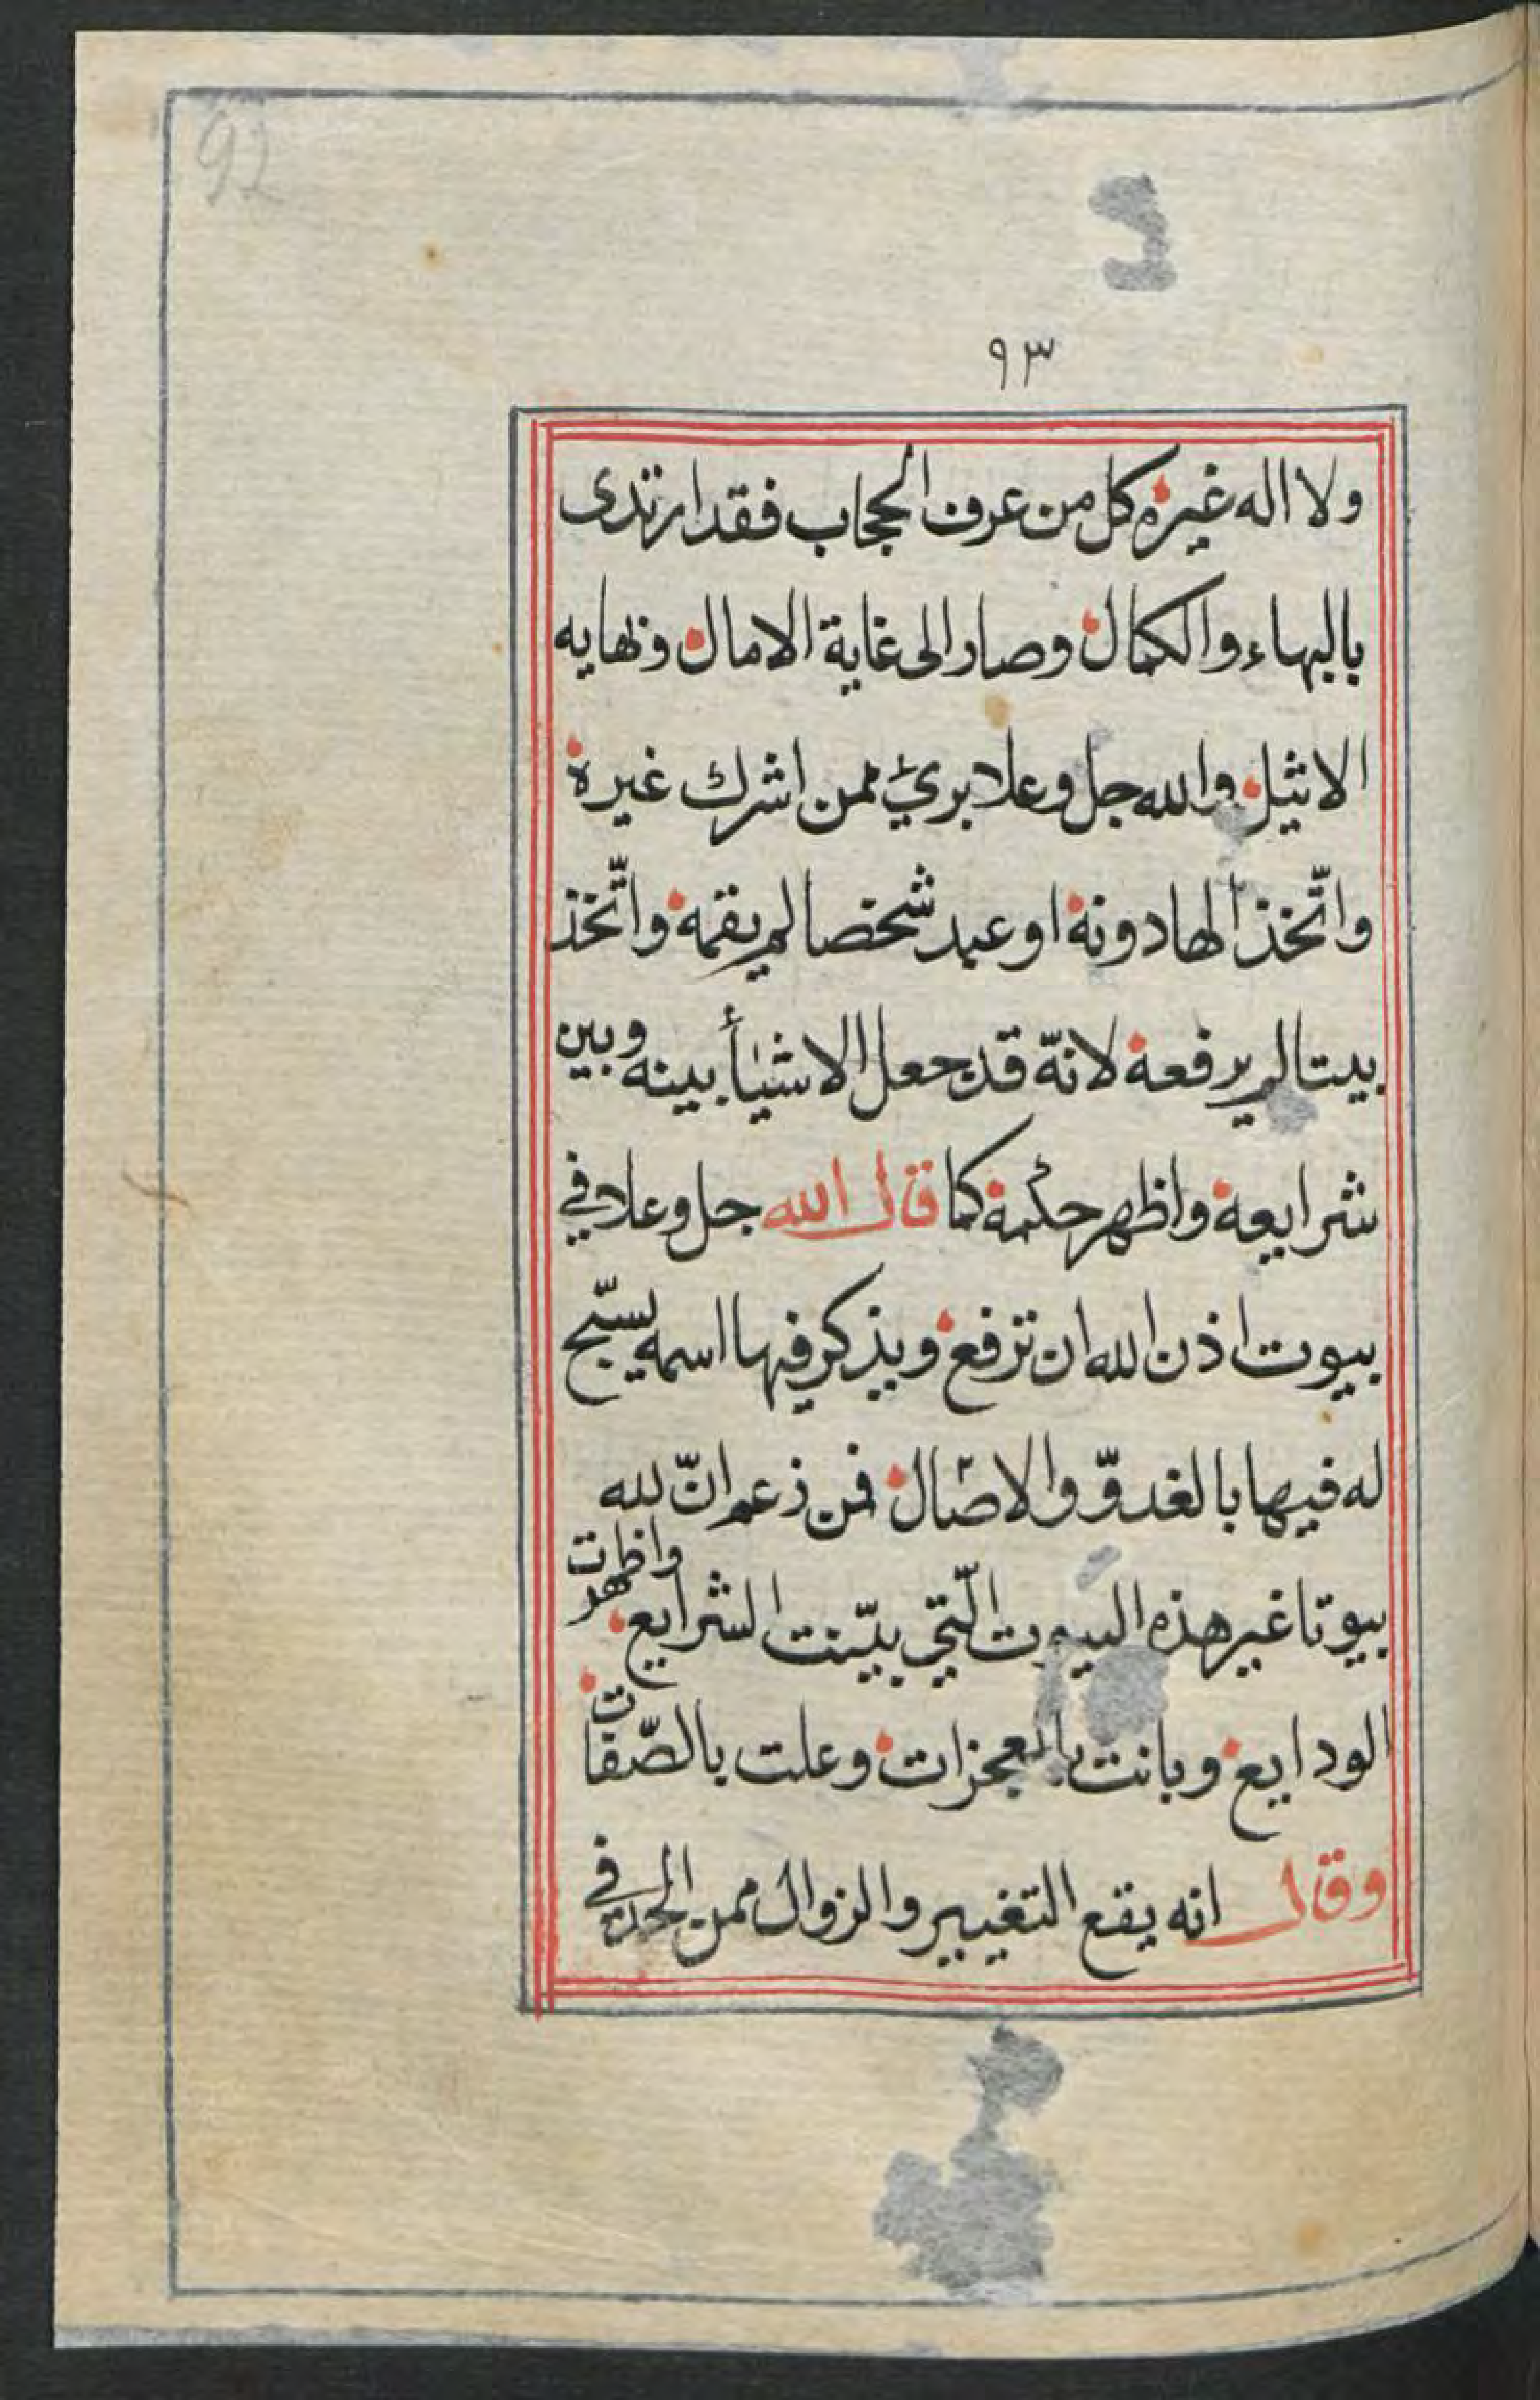 92
٩٣
ولا اله غيره كل من عرف الحجاب فقد ارتدى
بالبهاء والكمال وصار الى غاية الامال ونهايه
الاثيل والله جل وعلا بريٌ ممن اشرك غيره
واتّخذ الها دونه او عبد شخصا لم يقمه واتّخذ
بيتا لم يرفعه لانّه قد جعل الاشيأ بينه وبين
شرايعه واظهر حكمه كما قال الله جل وعلا في
بيوت اذن الله ان ترفع ويذكر فيها اسمه يسبّح
له فيها بالغدوّ والاصال فمن زعم انّ لله
بيوتا غير هذه البيوت الّتي بيّنت الشرايع واظهرت
الودايع وبانت بالمعجزات وعلت بالصّفات
وقال انه يقع التغيير والزوال ممن الحد في